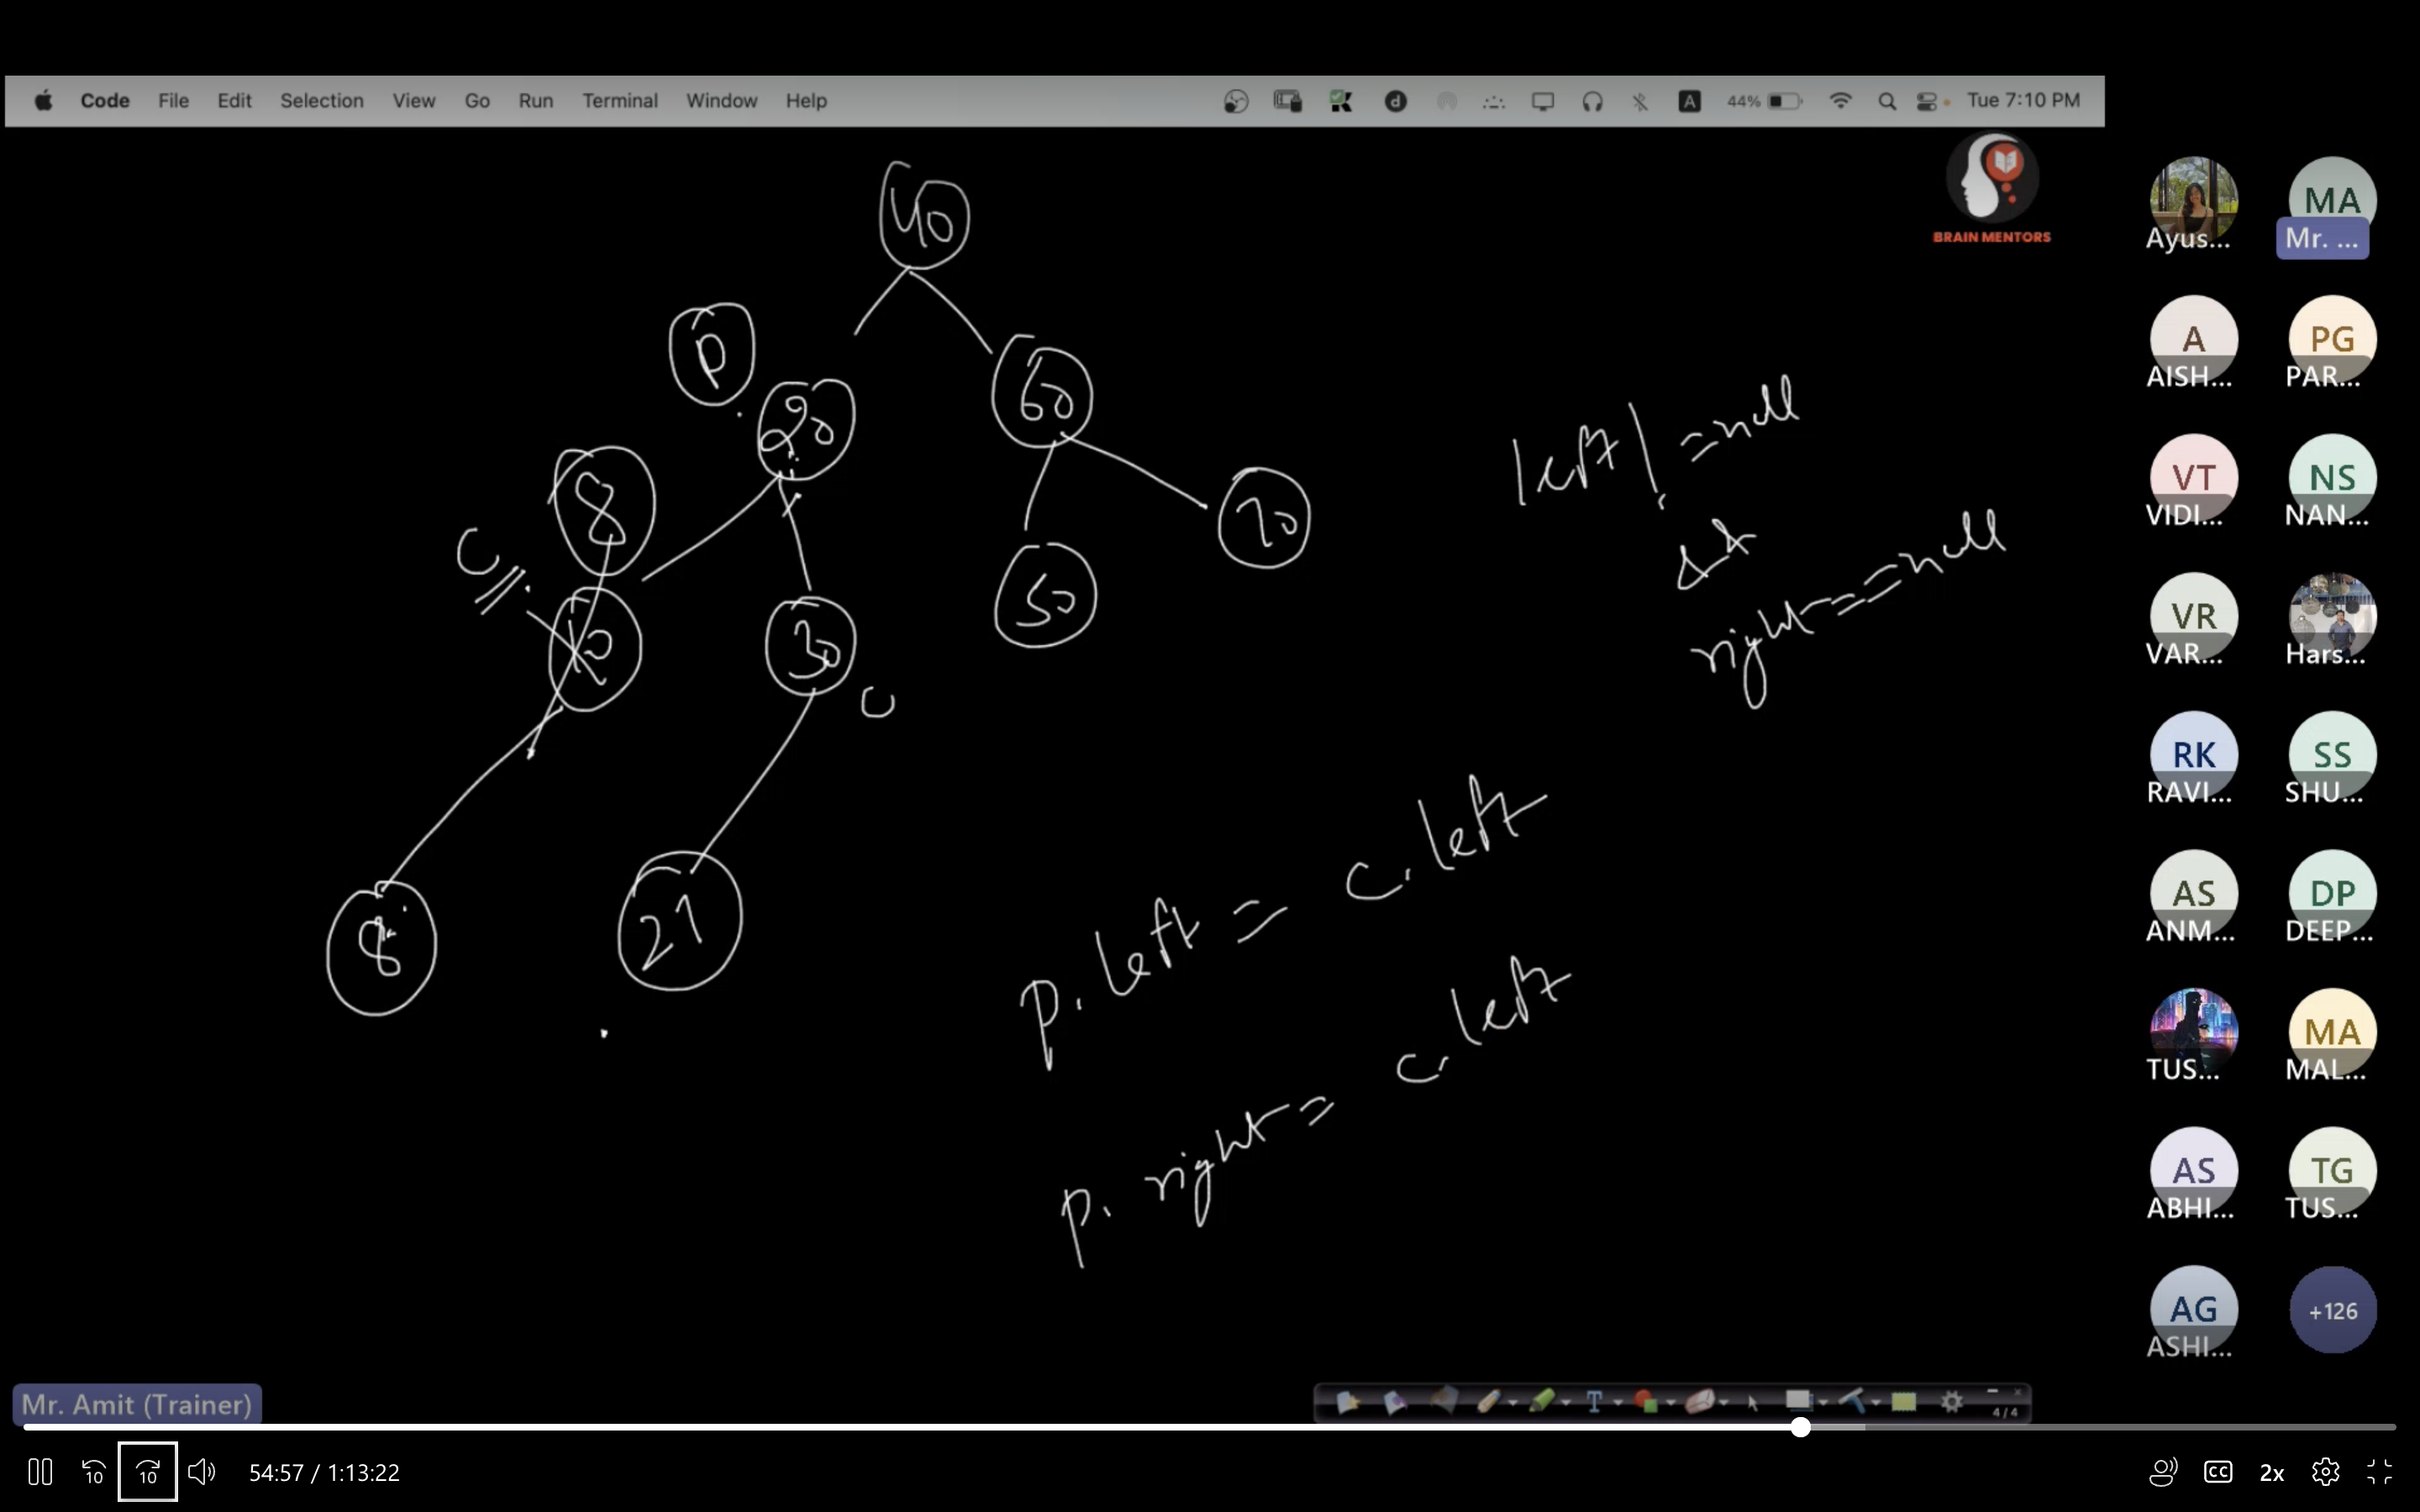 Code File Edit Selection View Go Run Terminal Window Help
A 44% Tue 7:10 PM
BRAIN MENTORS
40
P
20
60
8
C
10
30
C
50
70
8
21
left != null
&&
right == null
p. left = c. left
p. right = c. left
Ayus...
MA
Mr. ...
A
AISH...
PG
PAR...
VT
VIDI...
NS
NAN...
VR
VAR...
Hars...
RK
RAVI...
SS
SHU...
AS
ANM...
DP
DEEP...
TUS...
MA
MAL...
AS
ABHI...
TG
TUS...
AG
ASHI...
+126
Mr. Amit (Trainer)
4/4
10 10 54:57 / 1:13:22
CC 2x